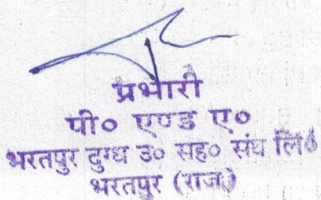 प्रभारी
पी० एण्ड ए०
भरतपुर दुग्ध उ० सह० संघ लि०
भरतपुर (राज०)